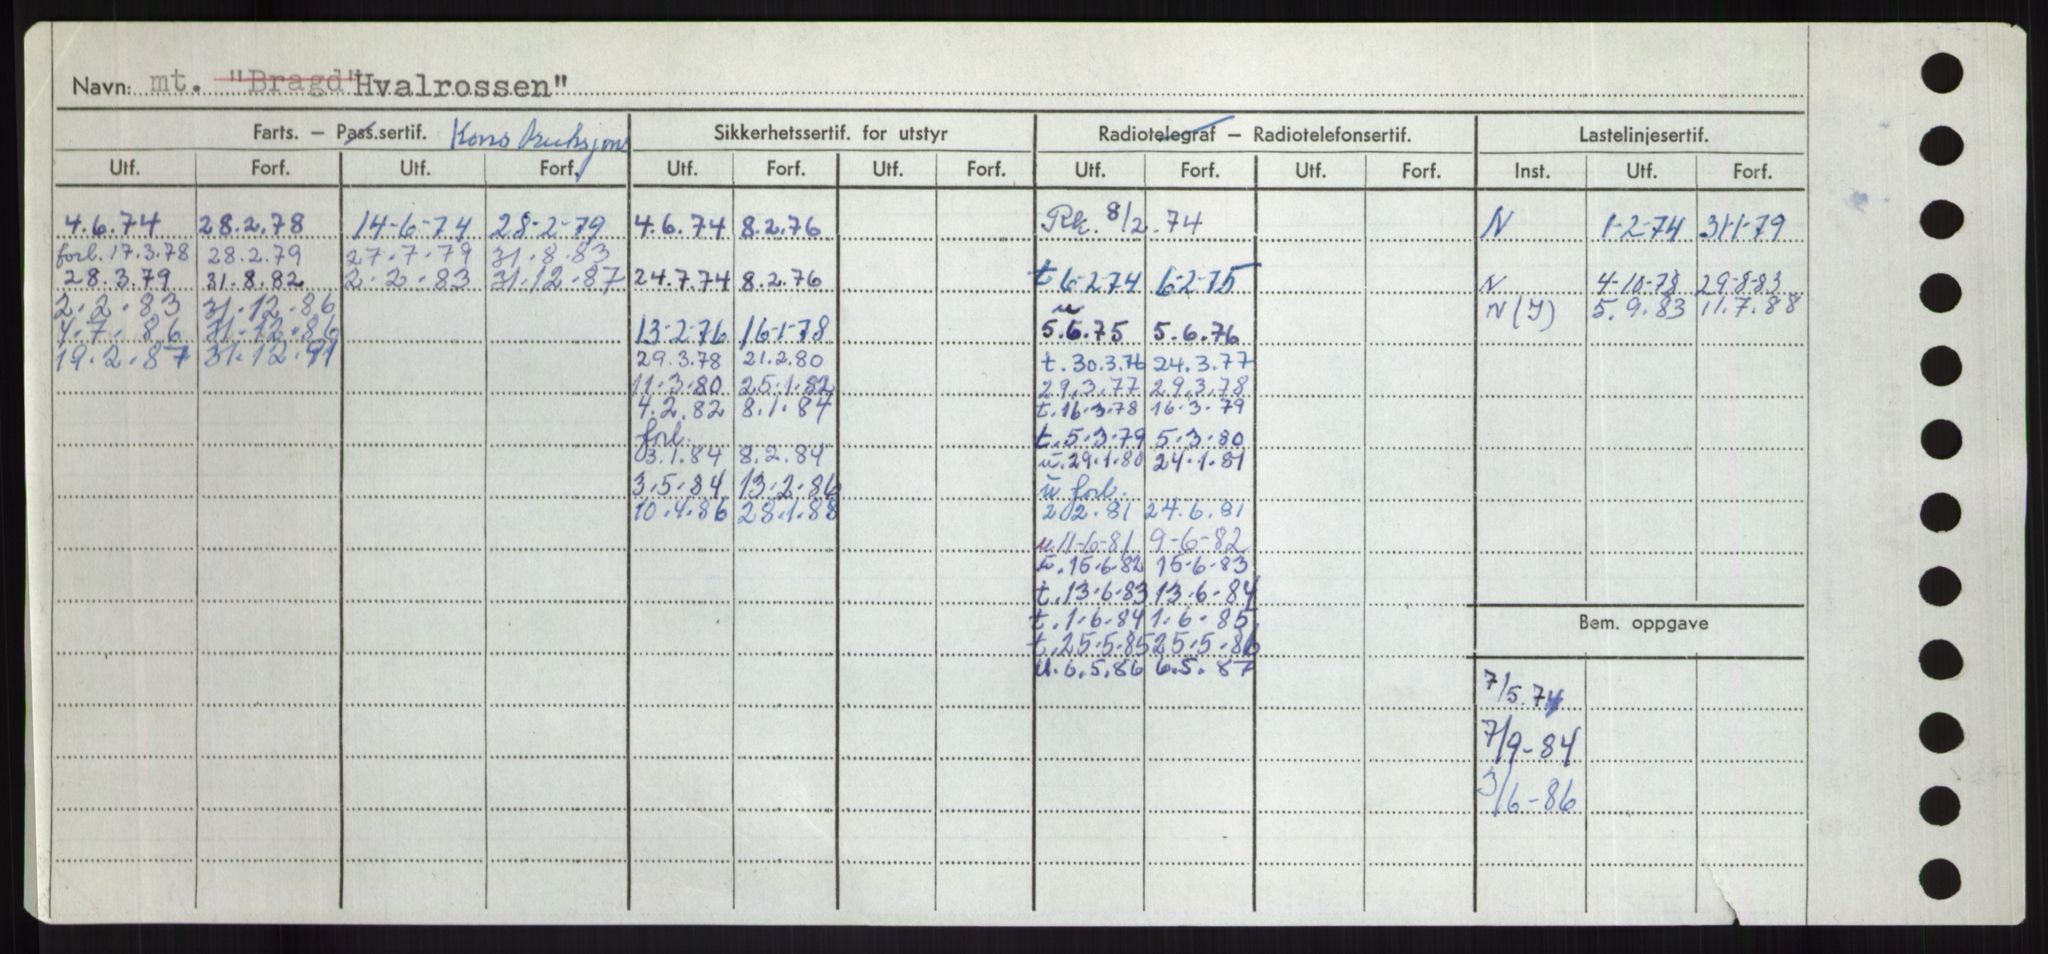 Navn: mt. "Bragd" Hvalrossen"
Farts. – Pass.sertif. Konstruksjons Sikkerhetssertif. for utstyr Radiotelegraf – Radiotelefonsertif. Lastelinjesertif.
Utf. Forf. Utf. Forf. Utf. Forf. Utf. Forf. Utf. Forf. Utf. Forf. Inst. Utf. Forf.
4.6.74 28.2.78 14-6-74 28-2-79 4.6.74 8.2.76 Rk. 8/2.74 N 1-2-74 31-1-79
forl. 17.3.78 28.2.79 27.7.79 31.8.83
28.3.79 31.8.82 2.2.83 31.12.87 24.7.74 8.2.76 t 6-2-74 6-2-75 N 4-10-78 29-8-83
2.2.83 31.12.86 u N(I) 5.9.83 11.7.88
4.7.86 31.12.86 13-2-76 16-1-78 5.6.75 5.6.76
19.2.87 31.12.91 29.3.78 21.2.80 t. 30.3.76 24.3.77
11.3.80 25.1.82 29.3.77 29.3.78
4.2.82 8.1.84 t. 16.3.78 16.3.79
forl. t. 5.3.79 5.3.80
3.1.84 8.2.84 u. 29.1.80 24.1.81
3.5.84 13.2.86 u forl.
10.4.86 28.1.88 2.2.81 24.6.81
u. 11-6-81 9-6-82
u. 15.6.82 15.6.83
t. 13.6.83 13.6.84
t. 1.6.84 1.6.85
t. 25.5.85 25.5.86
u. 6.5.86 6.5.87
Bem. oppgave
7/5.74
7/9-84
3/6-86